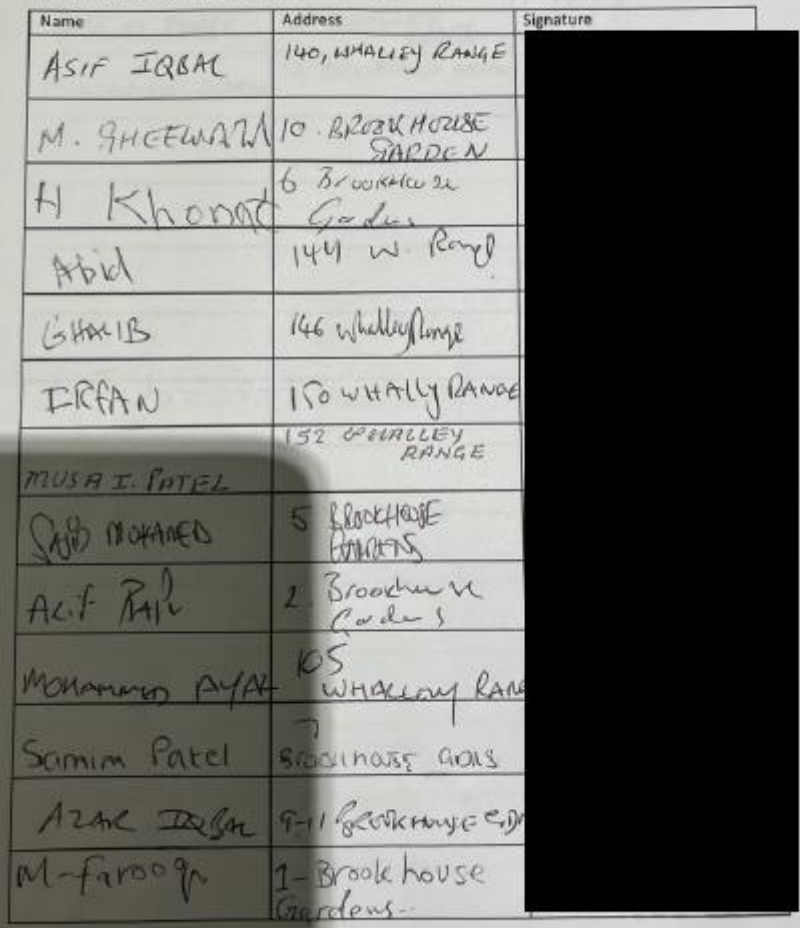 Name Address Signature
ASIF IQBAL 140, WHALLEY RANGE
M. 10. BROOKHOUSE
GARDEN
H 6 Brookhouse
Gardens
Abid 144 W. Range
GHALIB 146 Whalley Range
IRFAN 150 WHALLY RANGE
152 WHALLEY
RANGE
MUSA I. PATEL
SAJID MOHAMED 5 BROOKHOUSE
GARDENS
2. Brookhouse
Gardens
MOHAMMED 105
WHALLEY RANG
Samim Patel 7
BROOKHOUSE GDNS
AZAR IQBAL 9-11 BROOKHOUSE GDN
M-farooq 1-Brookhouse
Gardens..